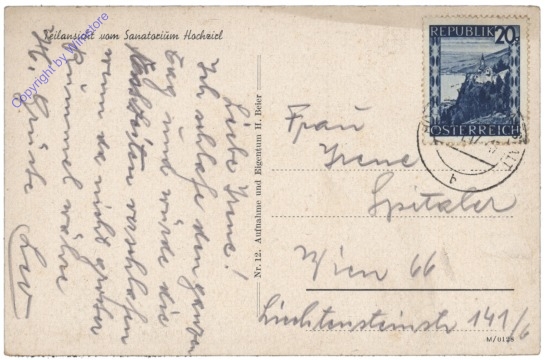 Teilansicht vom Sanatorium Hochzirl
Copyright by Winstore
Liebe Irene!
Ich schlafe den ganzen
Tag und würde die
verschlafen
wenn da nicht großer
wäre
H. Grüße
Nr. 12. Aufnahme und Eigentum H. Beier
REPUBLIK 20g
ÖSTERREICH
Frau
Irene
Spitaler
Wien 66
Liechtensteinstr 141/6
M/0128